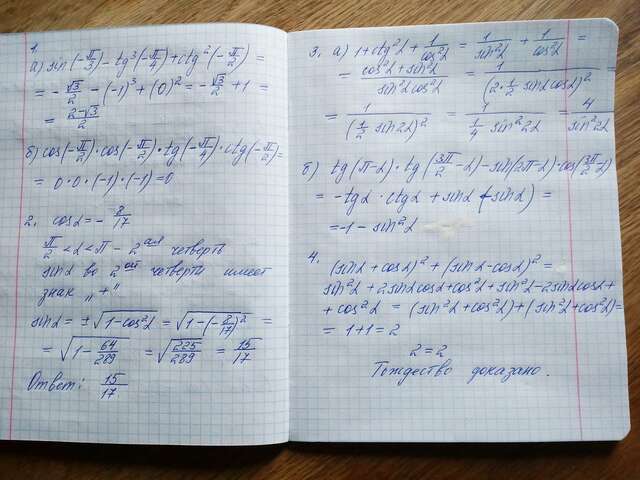 1.
а) sin(-π/3) - tg³(-π/4) + ctg²(-π/2) =
= -√3/2 - (-1)³ + (0)² = -√3/2 + 1 =
= 2-√3/2
б) cos(-π/2)·cos(-π/2)·tg(-π/4)·ctg(-π/2)=
= 0·0·(-1)·(-1)=0
2. cosα = -8/17
π/2 < α < π - 2ая четверть
sinα во 2ой четверти имеет
знак „+"
sinα = ±√1-cos²α = √1-(-8/17)² =
= √1-64/289 = √225/289 = 15/17
Ответ: 15/17
3. а) 1+ctg²α + 1/cos²α = 1/sin²α + 1/cos²α =
= cos²α+sin²α/sin²α cos²α = 1/(2·1/2 sinα cosα)² =
= 1/(1/2 sin2α)² = 1/1/4 sin²2α = 4/sin²2α
б) tg(π-α)·tg(3π/2-α)-sin(2π-α)·cos(3π/2-α)
= -tgα·ctgα + sinα(-sinα) =
= -1 - sin²α
4. (sinα+cosα)² + (sinα-cosα)² =
sin²α+2sinα cosα+cos²α+sin²α-2sinα cosα+
+cos²α = (sin²α+cos²α)+(sin²α+cos²α)=
= 1+1=2
2=2
Тождество доказано.